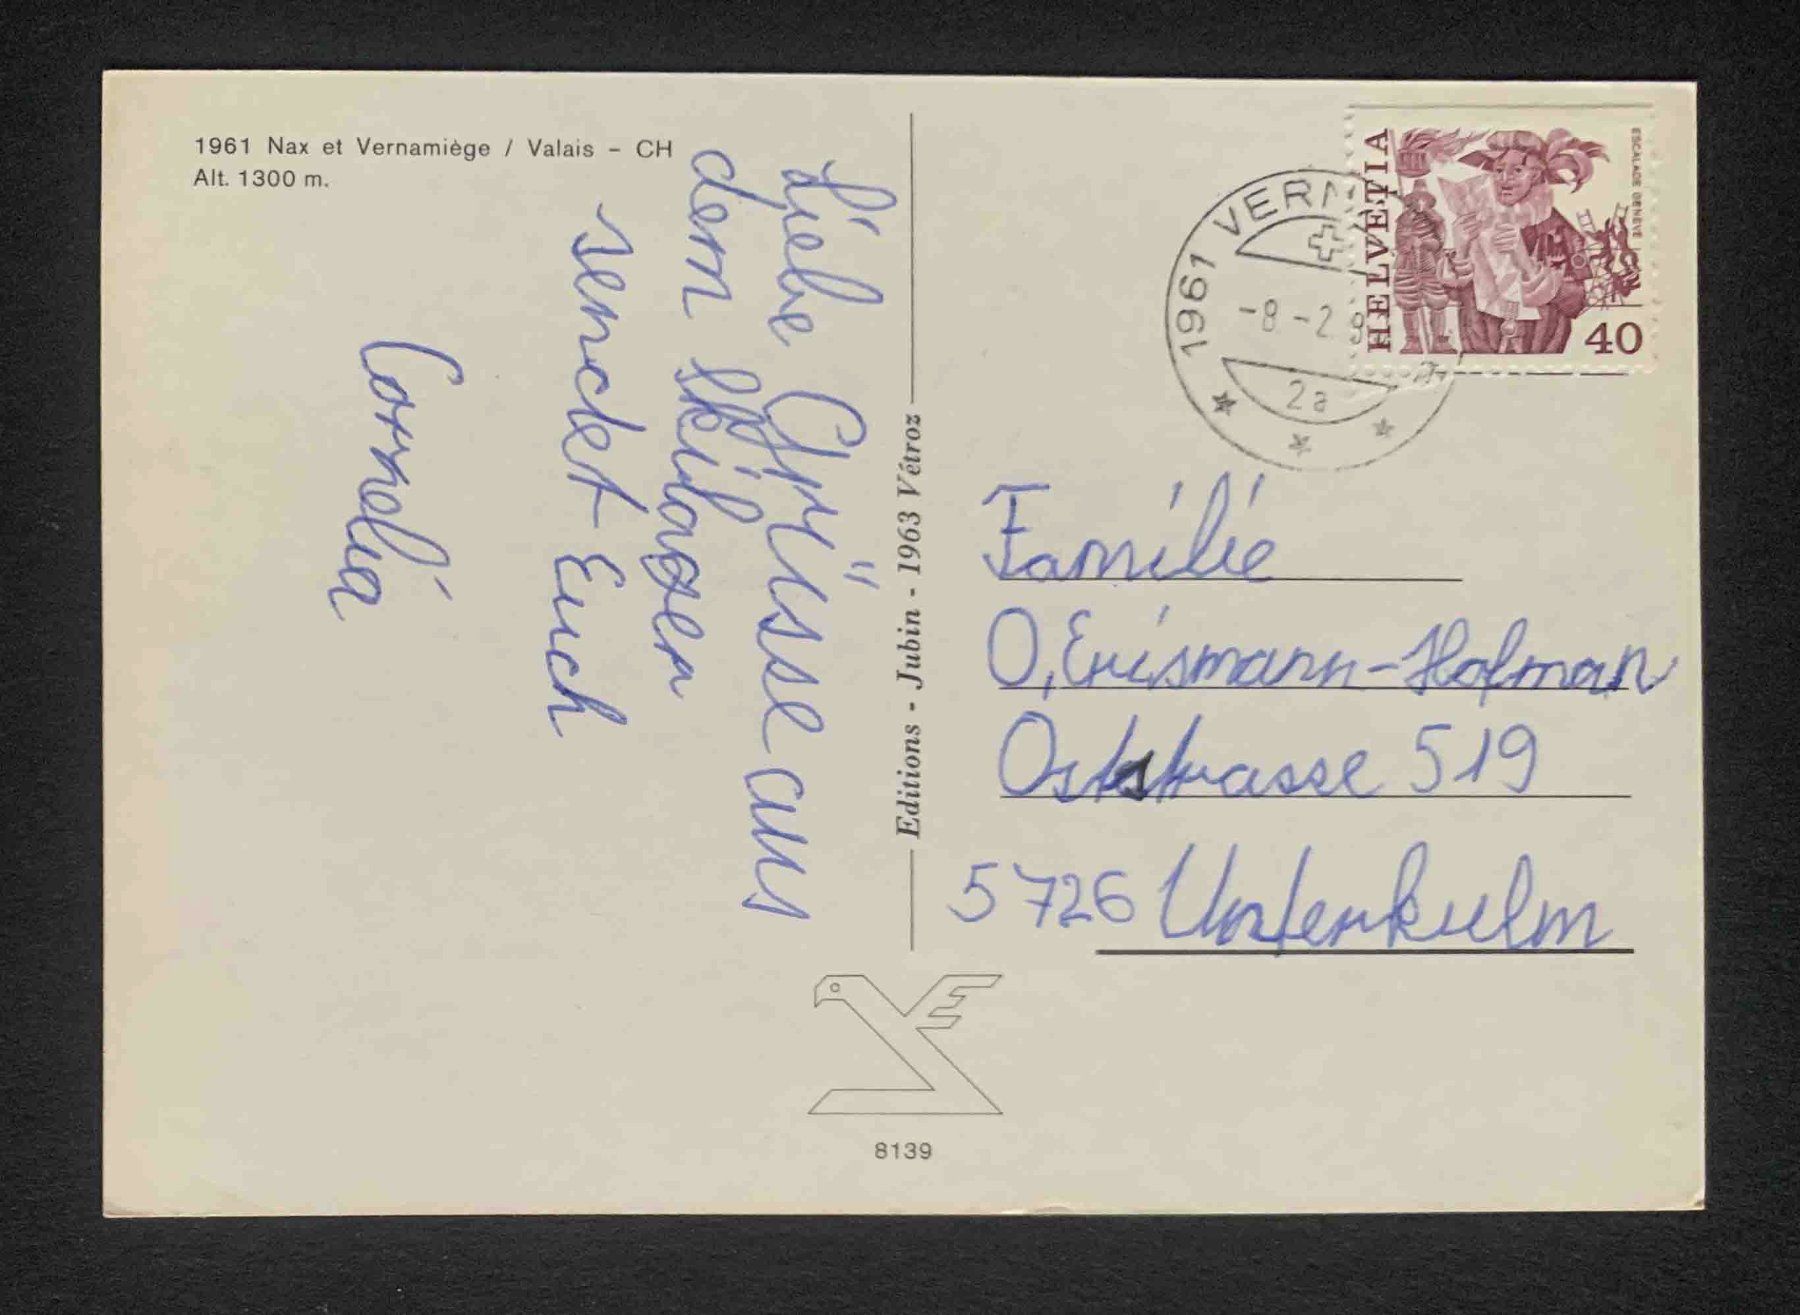 1961 Nax et Vernamiège / Valais – CH
Alt. 1300 m.
Liebe Grüsse aus
dem Skilager
sendet Euch
Cornelia
Editions - Jubin - 1963 Vétroz
1961 VERN
-8-2.8
2a
HELVETIA
ESCALADE GENÈVE
40
Familie
O. Erismann-Hofman
Oststrasse 519
5726 Unterkulm
8139